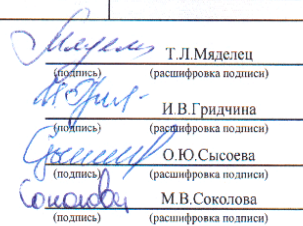 Т.Л.Мяделец
(подпись) (расшифровка подписи)
И.В.Гридчина
(подпись) (расшифровка подписи)
О.Ю.Сысоева
(подпись) (расшифровка подписи)
Соколова М.В.Соколова
(подпись) (расшифровка подписи)